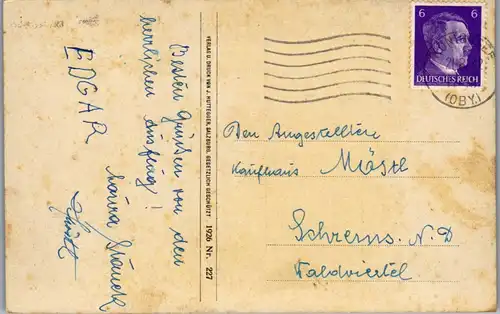 Besten Grüßen von den
herrlichen Ausflug!
EDGAR
VERLAG U. DRUCK VON J. HUTTEGGER, SALZBURG. GESETZLICH GESCHÜTZT 1926 Nr. 227
6 6
DEUTSCHES REICH
(OBY.)
Den Angestellten
Kaufhaus Möstl
Schrems. N.D
Waldviertel